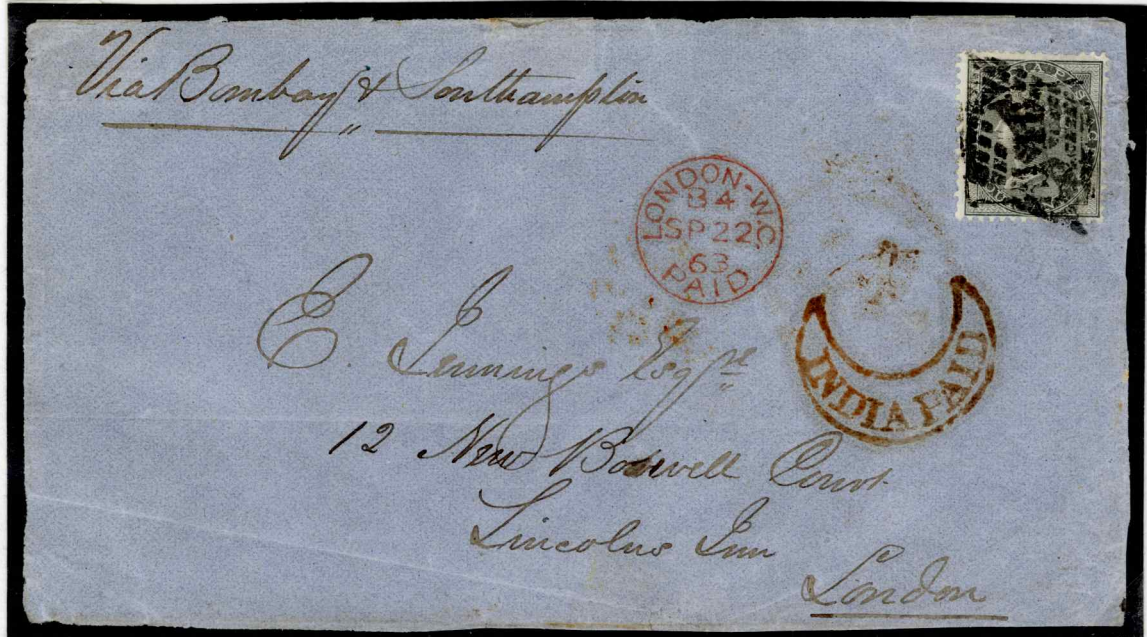 Via Bombay & Southampton
LONDON-W.C
B4
SP 22
63
PAID
INDIA PAID
E. Jennings Esqre
12 New Boswell Court
Lincolns Inn
London